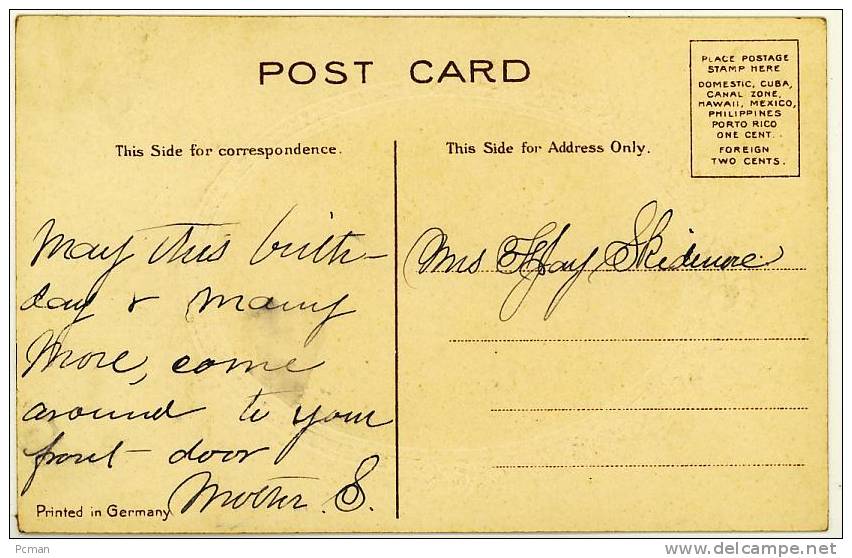 POST CARD
PLACE POSTAGE
STAMP HERE
DOMESTIC, CUBA,
CANAL ZONE,
HAWAII, MEXICO,
PHILIPPINES
PORTO RICO
ONE CENT.
FOREIGN
TWO CENTS.
This Side for correspondence.
This Side for Address Only.
May this birth-
day & many
more, come
around to your
front - door
Mother. S.
Mrs Skidmore
Printed in Germany
Pcman
http://www.delcampe.net